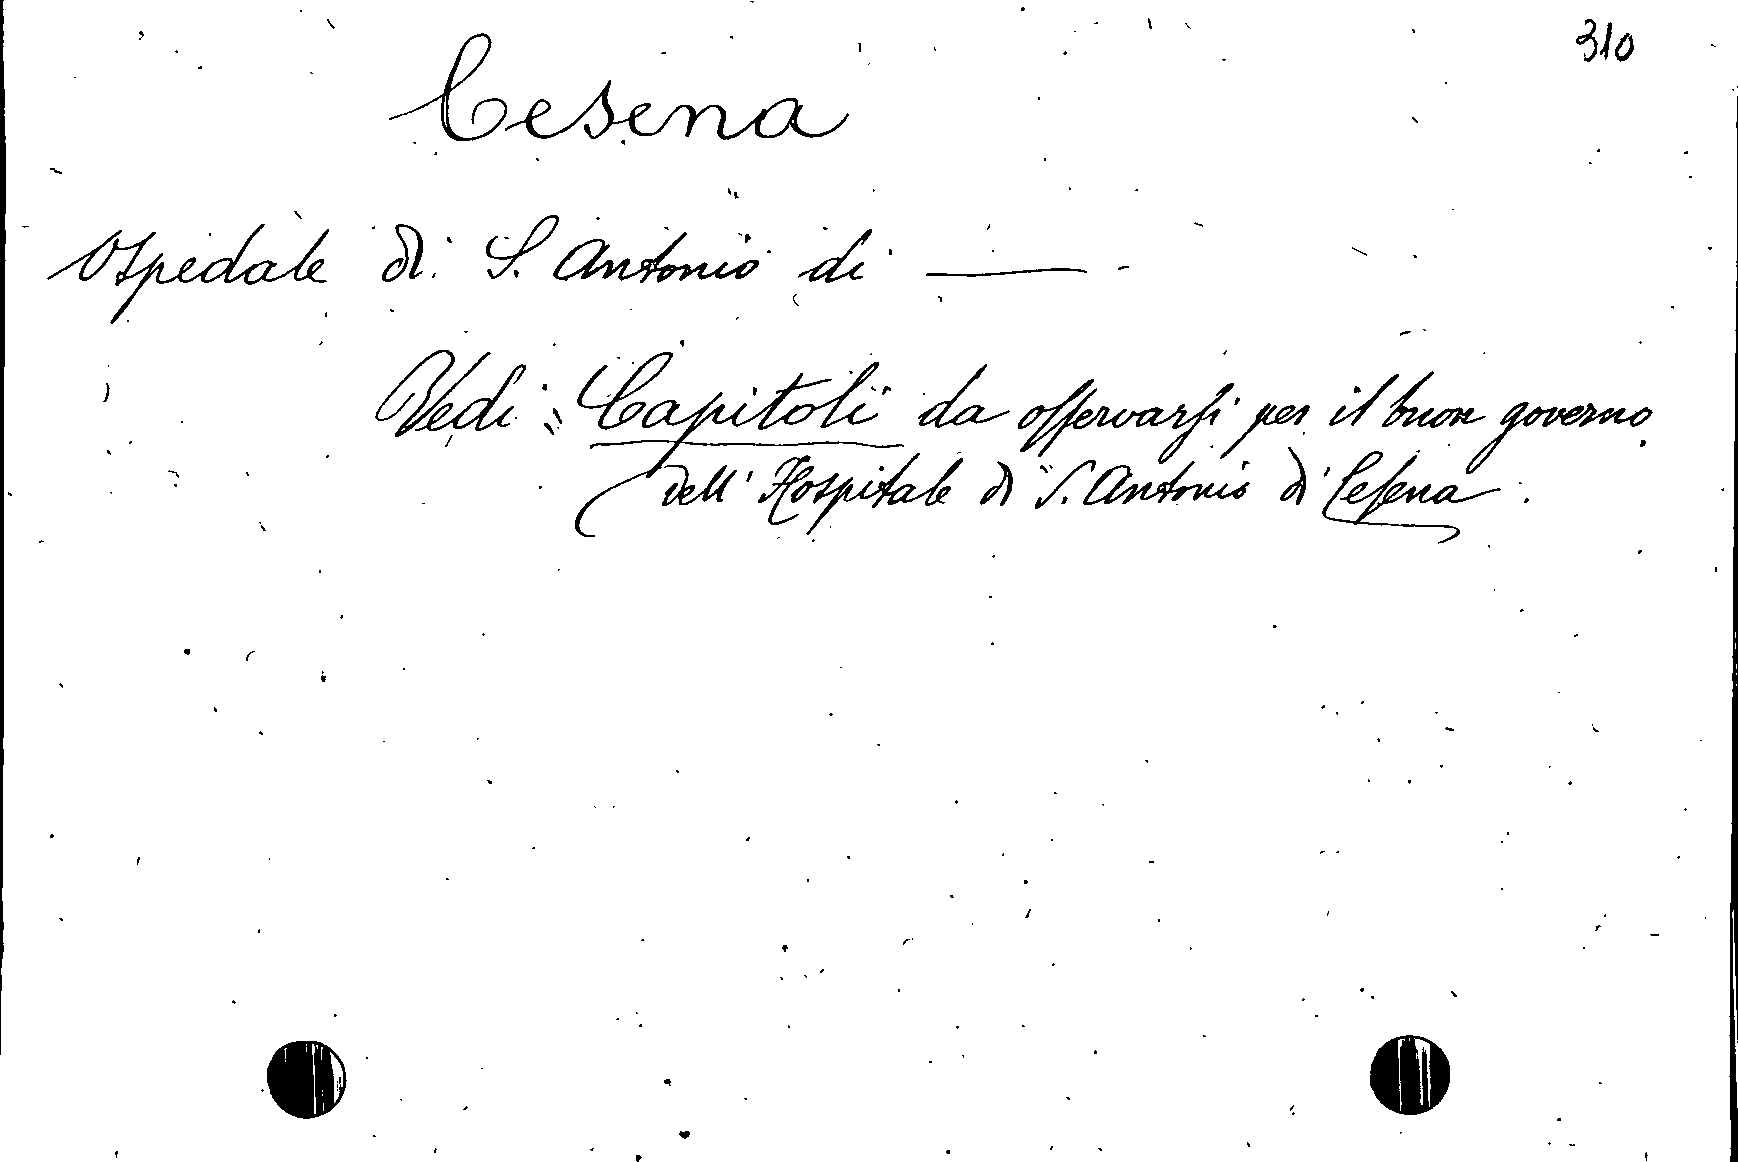 310
Cesena
Ospedale di S. Antonio di ———
Vedi: "Capitoli da osservarsi per il buon governo
dell' Hospitale di S. Antonio di Cesena.